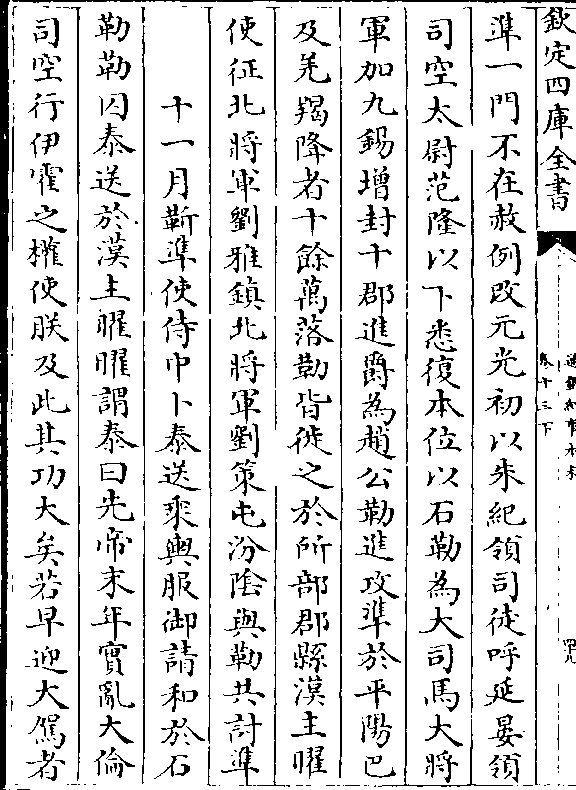 欽定四庫全書
通鑑紀事本末
卷十三下
準一門不在赦例改元光初以朱紀領司徒呼延晏領
司空太尉范隆以下悉復本位以石勒為大司馬大將
軍加九錫增封十郡進爵為趙公勒進攻準於平陽巴
及羌羯降者十餘萬落勒皆徙之於所部郡縣漢主曜
使征北將軍劉雅鎮北將軍劉策屯汾陰與勒共討準
十一月靳準使侍中卜泰送乘輿服御請和於石
勒勒囚泰送於漢主曜曜謂泰曰先帝末年實亂大倫
司空行伊霍之權使朕及此其功大矣若早迎大駕者